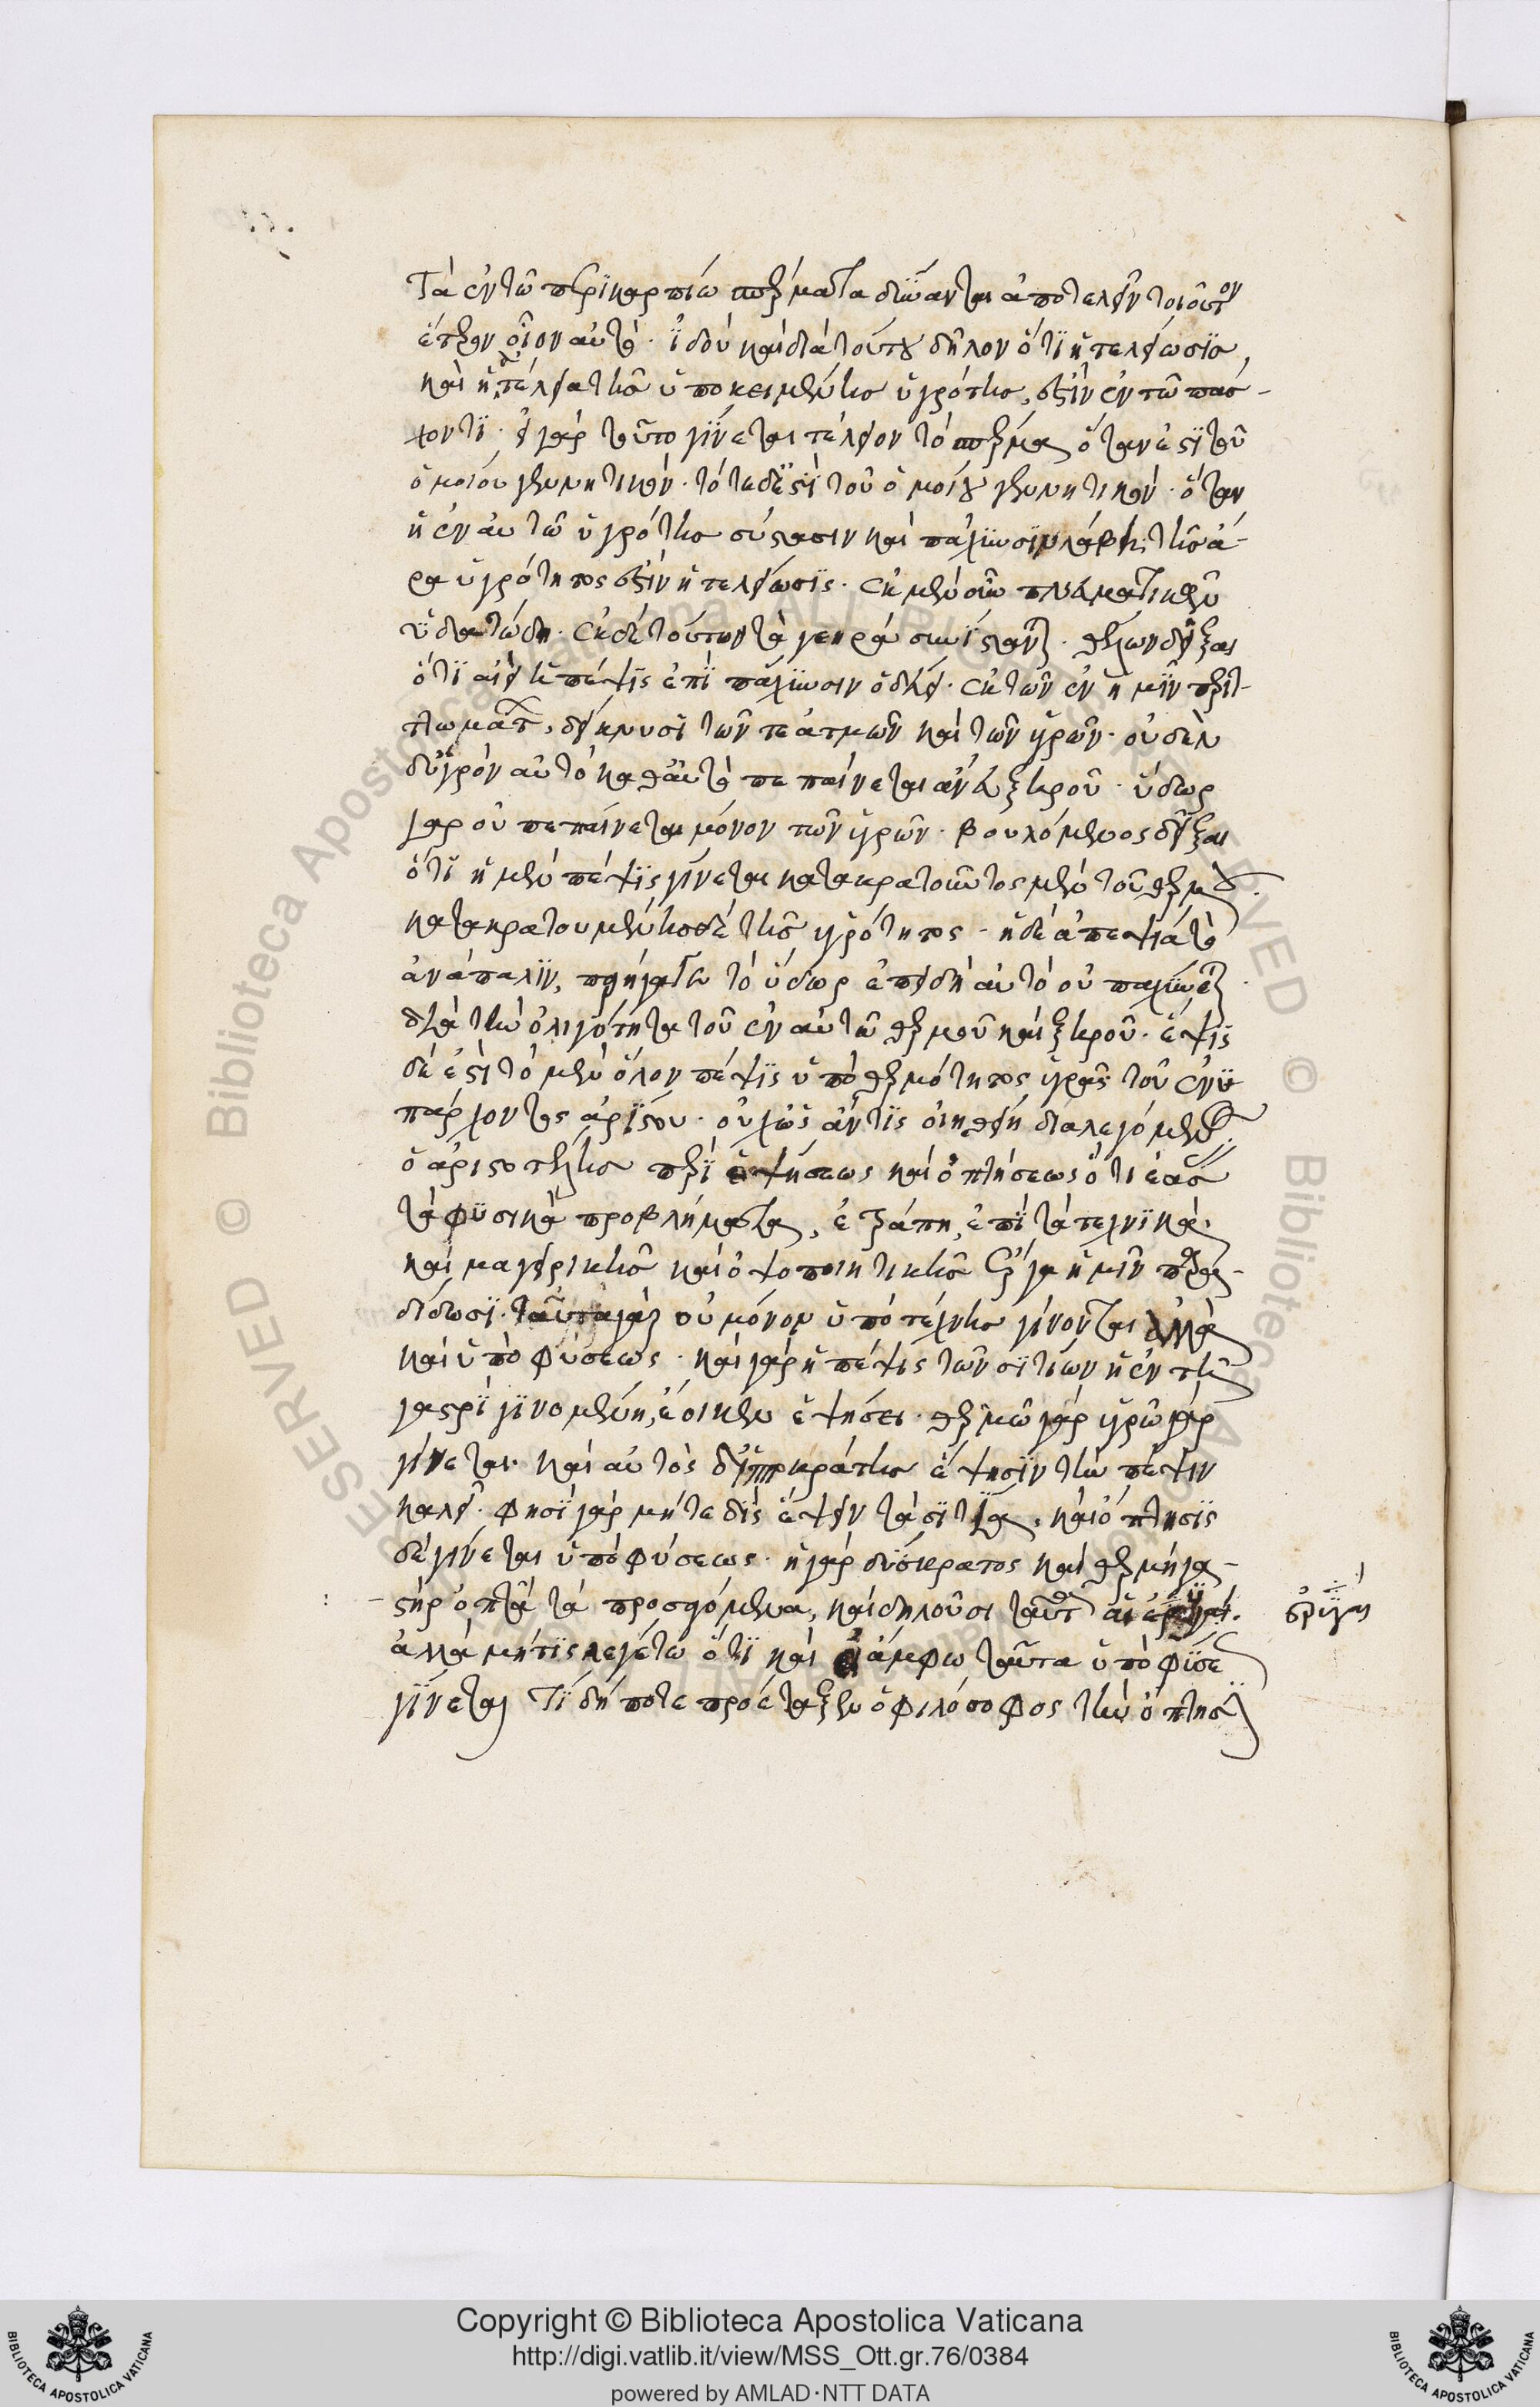 Τὰ ἐν τῷ περικαρπίῳ σπέρματα δύνανται ἀποτελεῖν τοιοῦτον
ἕτερον οἷον αὐτό. ἰδοὺ καὶ διὰ τούτου δῆλον ὅτι ἡ τελείωσις,
καὶ ἡ ἀτέλεια τῆς ὑποκειμένης ὑγρότης, ἐστὶν ἐν τῷ πάσ-
χοντι. εἰ γὰρ τοῦτο γίνεται τέλειον τὸ σπέρμα ὅταν ἐστὶ τοῦ
ὁμοίου γεννητικόν. τότε δέ ἐστι τοῦ ὁμοίου γεννητικόν. ὅταν
ἡ ἐν αὐτῷ ὑγρότης σύστασιν καὶ πάχυνσιν λάβῃ, τῆς ἄ-
ρα ὑγρότητος ἐστὶν ἡ τελείωσις. ἐκ μὲν οὖν πνευματικῶν
ὑδατώδη. ἐκ δὲ τούτων τὰ γεηρὰ συνίστανται. θέλων δεῖξαι
ὅτι αἰεὶ ἡ πέψις ἐπὶ πάχυνσιν ὁδεύει. ἐκ τῶν ἐν ἡμῖν περιτ-
τωμάτων, δείκνυσι τῶν τε ἀτμῶν καὶ τῶν ὑγρῶν. οὐδὲν
δ' ὑγρὸν αὐτὸ καθ' αὑτὸ πεπαίνεται ἄνευ ξηροῦ. ὕδωρ
γὰρ οὐ πεπαίνεται μόνον τῶν ὑγρῶν. βουλόμενος δεῖξαι
ὅτι ἡ μὲν πέψις γίνεται κατακρατοῦντος μὲν τοῦ θερμοῦ.
κατακρατουμένης δὲ τῆς ὑγρότητος. ἡ δὲ ἀπεψία τὸ
ἀνάπαλιν, παρήγαγε τὸ ὕδωρ ἐπειδὴ αὐτὸ οὐ παχύνεται
διὰ τὴν ὀλιγότητα τοῦ ἐν αὐτῷ θερμοῦ καὶ ξηροῦ. ἕψις
δέ ἐστι τὸ μὲν ὅλον πέψις ὑπὸ θερμότητος ὑγρᾶς τοῦ ἐνυ
πάρχοντος ἀορίστου. οὐχ ὡς ἄν τις οἰηθείη διαλεγόμενος
ὁ ἀριστοτέλης περὶ ἑψήσεως καὶ ὀπτήσεως ὅτι ἐάσας
τὰ φυσικὰ προβλήματα, ἐτράπη, ἐπὶ τὰ τεχνικά.
καὶ μαγειρικῆς καὶ ὀψοποιητικῆς ἔργα ἡμῖν παρα-
δίδωσι. ταῦτα γὰρ οὐ μόνον ὑπὸ τέχνης γίνονται ἀλλὰ
καὶ ὑπὸ φύσεως. καὶ γὰρ ἡ πέψις τῶν σιτίων ἡ ἐν τῇ
γαστρὶ γινομένη, ἔοικεν ἑψήσει. θερμῷ γὰρ ὑγρῷ γὰρ
γίνεται. καὶ αὐτὸς δ' ἱπποκράτης ἕψησιν τὴν πέψιν
καλεῖ. φησὶ γὰρ μήτε δὶς ἕψειν τὰ σιτία. καὶ ὄπτησις
δὲ γίνεται ὑπὸ φύσεως. ἡ γὰρ δύσκρατος καὶ θερμὴ γα-
στὴρ ὀπτᾷ τὰ προσφερόμενα, καὶ δηλοῦσι τοῦτο αἱ ἐρυγαί.
ἐρυγαί
ἀλλὰ μή τις λεγέτω ὅτι καὶ εἰ ἄμφω ταῦτα ὑπὸ φύσεως
γίνεται τί δή ποτε προέταξεν ὁ φιλόσοφος τὴν ὄπτησιν
Copyright © Biblioteca Apostolica Vaticana
http://digi.vatlib.it/view/MSS_Ott.gr.76/0384
powered by AMLAD·NTT DATA
BIBLIOTECA APOSTOLICA VATICANA
BIBLIOTECA APOSTOLICA VATICANA